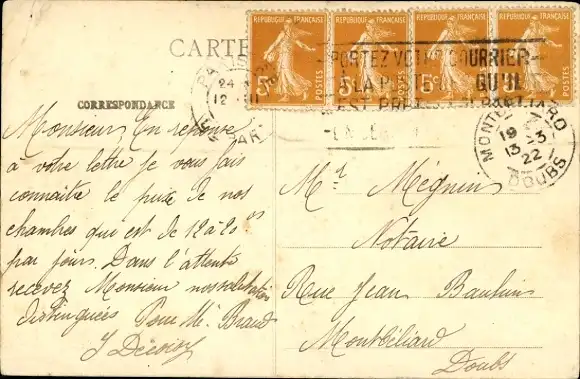 CARTE
REPUBLIQUE FRANÇAISE REPUBLIQUE FRANÇAISE REPUBLIQUE FRANÇAISE REPUBLIQUE FRANÇAISE
5c 5c 5c
POSTES POSTES POSTES POSTES
PORTEZ VOTRE COURRIER
A LA POSTE QU'IL
EST
24
12
MONTB
19
13-3
22
DOUBS
CORRESPONDANCE
Monsieur, En reponse
à votre lettre je vous fais
connaitre le prix de nos
chambres qui est de 12 à 20 frs
par jours. Dans l'attente
recevez Monsieur nos salutations
distinguées Pour Mr
Mr Mégnin
Notaire
Rue Jean Bauhin
Montbéliard
Doubs